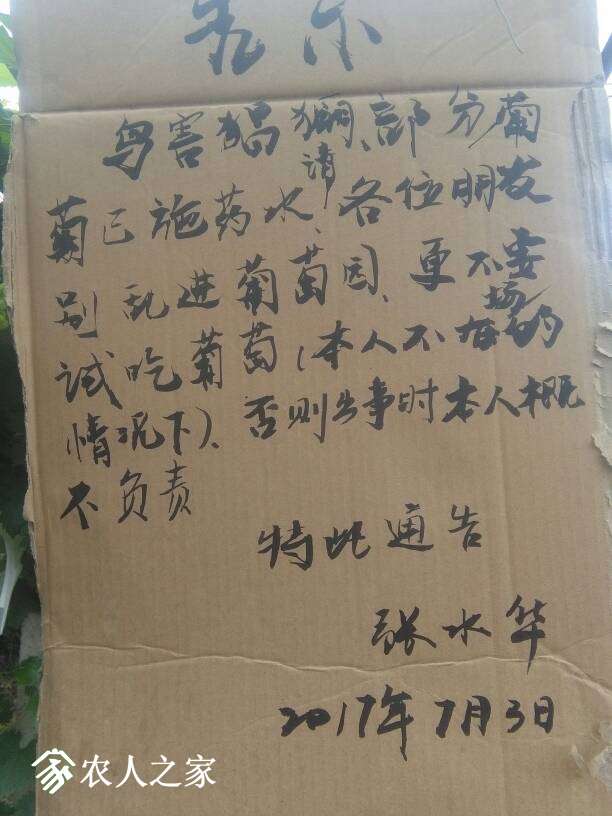 鸟害猖獗、部分葡
萄已施药水、请各位朋友
别乱进葡萄园、更不要
试吃葡萄(本人不在场的
情况下)、否则出事时本人概
不负责
特此通告
张水华
2017年7月3日
农人之家